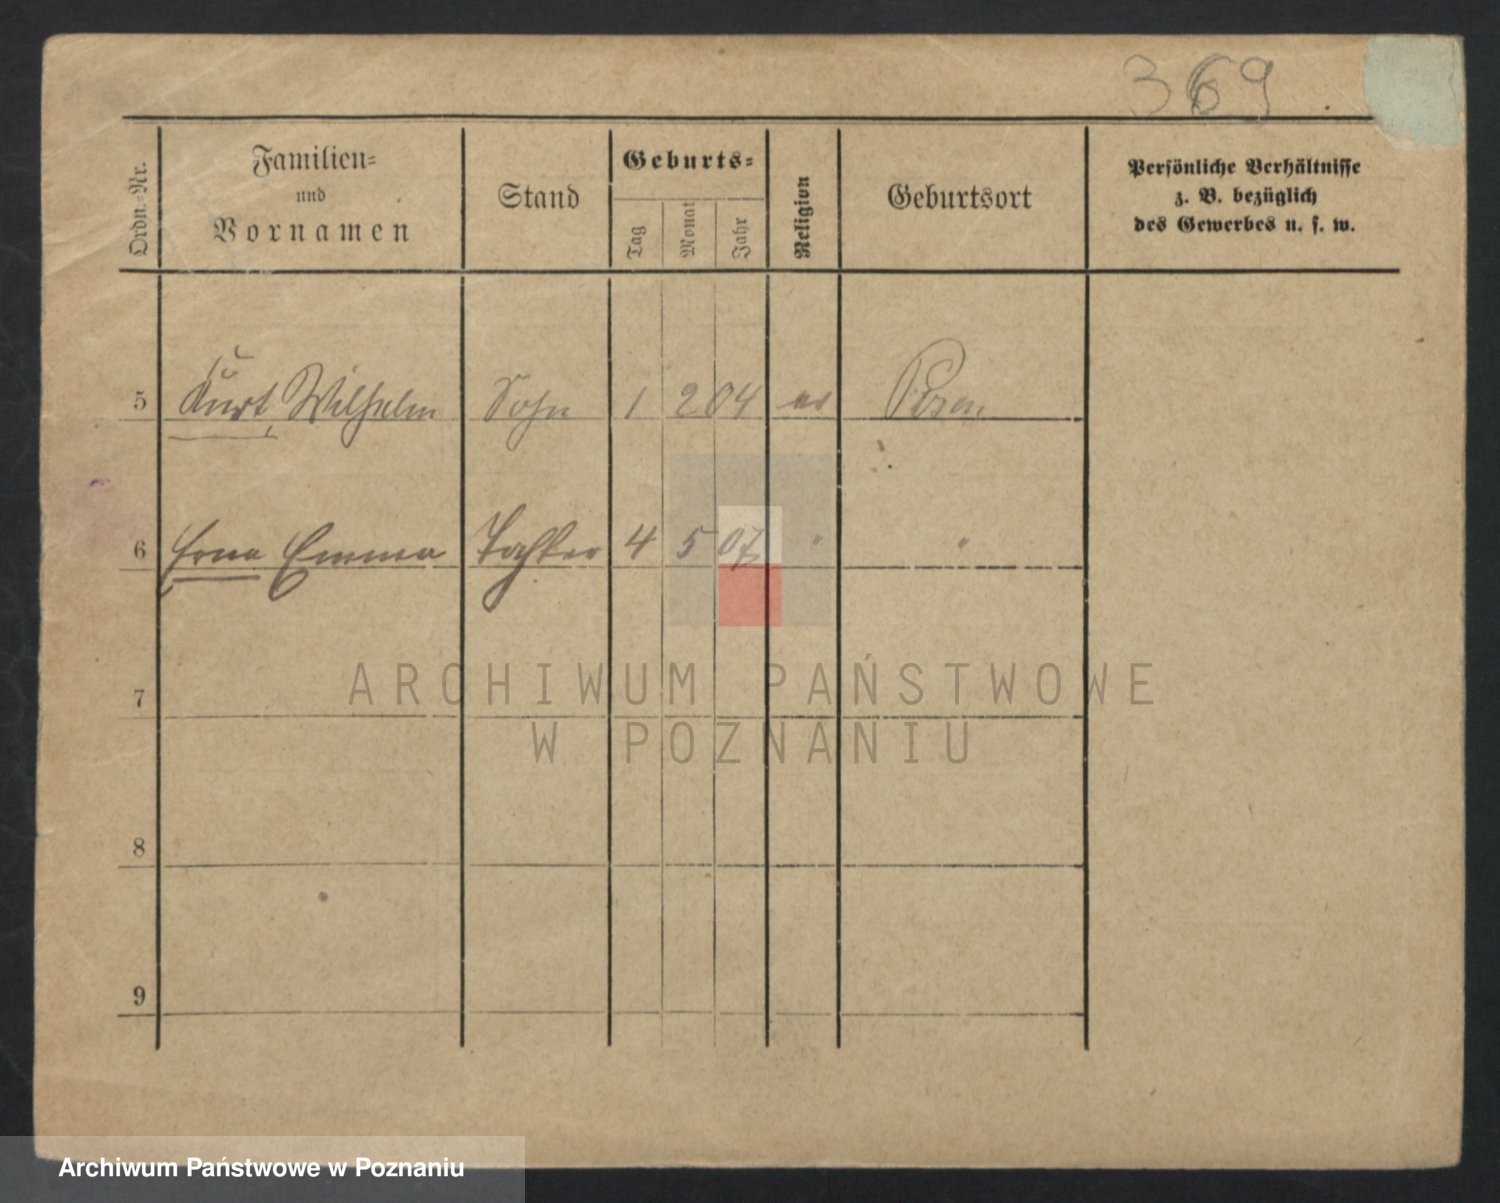 369
Ordn.-Nr.
Familien-
und
Vornamen
Stand
Geburts-
Tag
Monat
Jahr
Religion
Geburtsort
Persönliche Verhältnisse
z. B. bezüglich
des Gewerbes u. s. w.
5 Kurt, Wilhelm Sohn 1 2 04 ev Posen
6 Erna Emma Tochter 4 5 07 " "
7
8
9
ARCHIWUM PAŃSTWOWE
W POZNANIU
Archiwum Państwowe w Poznaniu